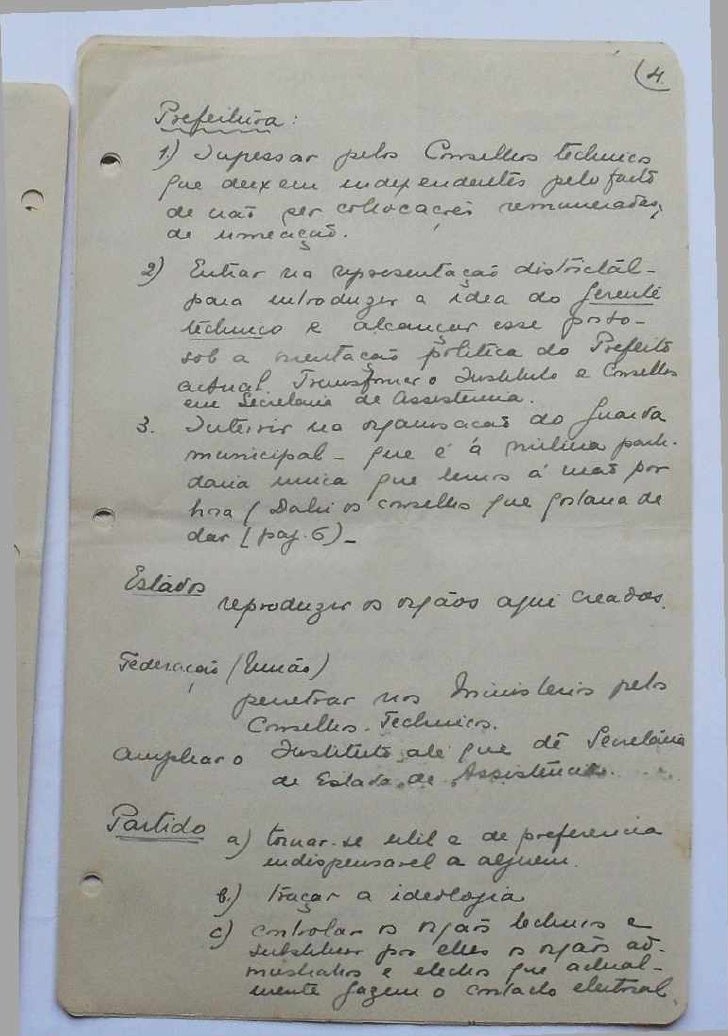 4.
Prefeitura:
1.) Ingressar pelos Conselhos technicos
que deixem independentes pelo facto
de não ser collocações remuneradas,
de nomeação.
2) Entrar na representação districtal -
para introduzir a idea do Gerente
technico e alcançar esse posto -
sob a orientação politica do Prefeito
actual. Transformar o Instituto e Conselhos
em Secretaria de Assistencia.
3. Intervir na organisação da Guarda
municipal - que é a milicia parti-
daria unica que temos á mão por
hora (Dahi os conselhos que gostaria de
dar [pag. 6) -
Estados
reproduzir os orgãos aqui creados.
Federação (União)
penetrar nos Ministerios pelos
Conselhos Technicos.
Ampliar o Instituto até que dê Secretária
de Estado de Assistência.
Partido a) tornar-se util e de preferencia
indispensavel a alguem.
b.) traçar a ideologia
c) controlar os orgãos technicos e
substituir por elles os orgãos ad-
ministrativos e electivos que actual-
mente fazem o contacto eleitoral.